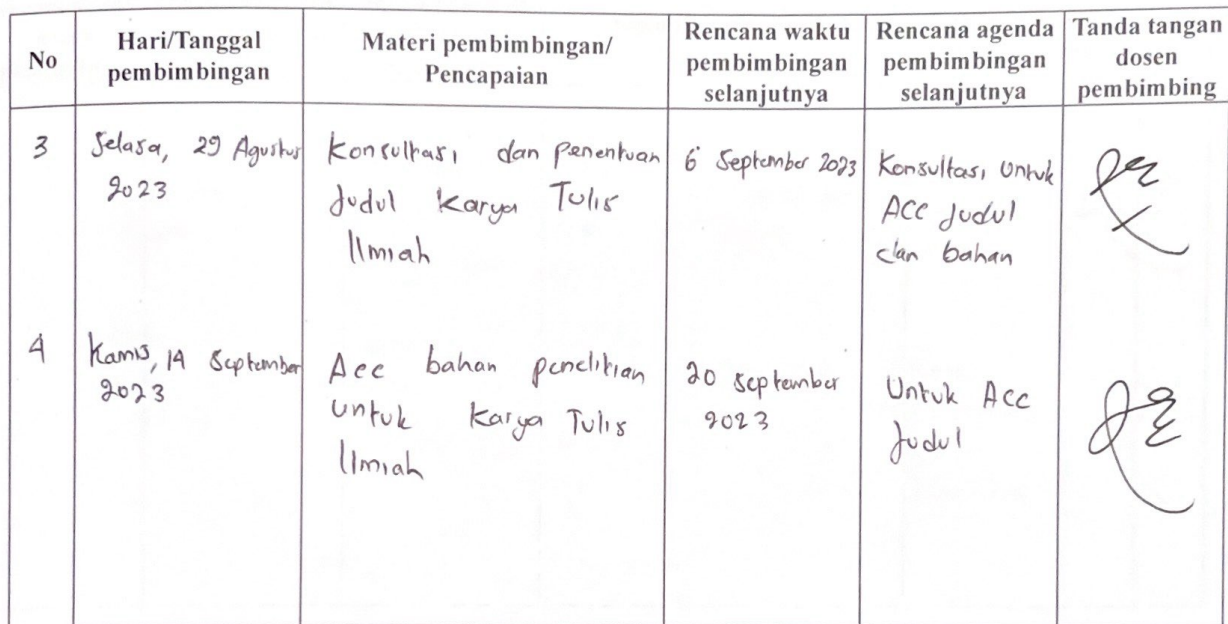 No
Hari/Tanggal
pembimbingan
Materi pembimbingan/
Pencapaian
Rencana waktu
pembimbingan
selanjutnya
Rencana agenda
pembimbingan
selanjutnya
Tanda tangan
dosen
pembimbing
3
Selasa, 29 Agustus
2023
Konsultasi dan penentuan
Judul Karya Tulis
Ilmiah
6 September 2023
Konsultasi Untuk
ACC Judul
dan bahan
4
Kamis, 14 September
2023
Acc bahan penelitian
untuk Karya Tulis
Ilmiah
20 September
2023
Untuk Acc
Judul